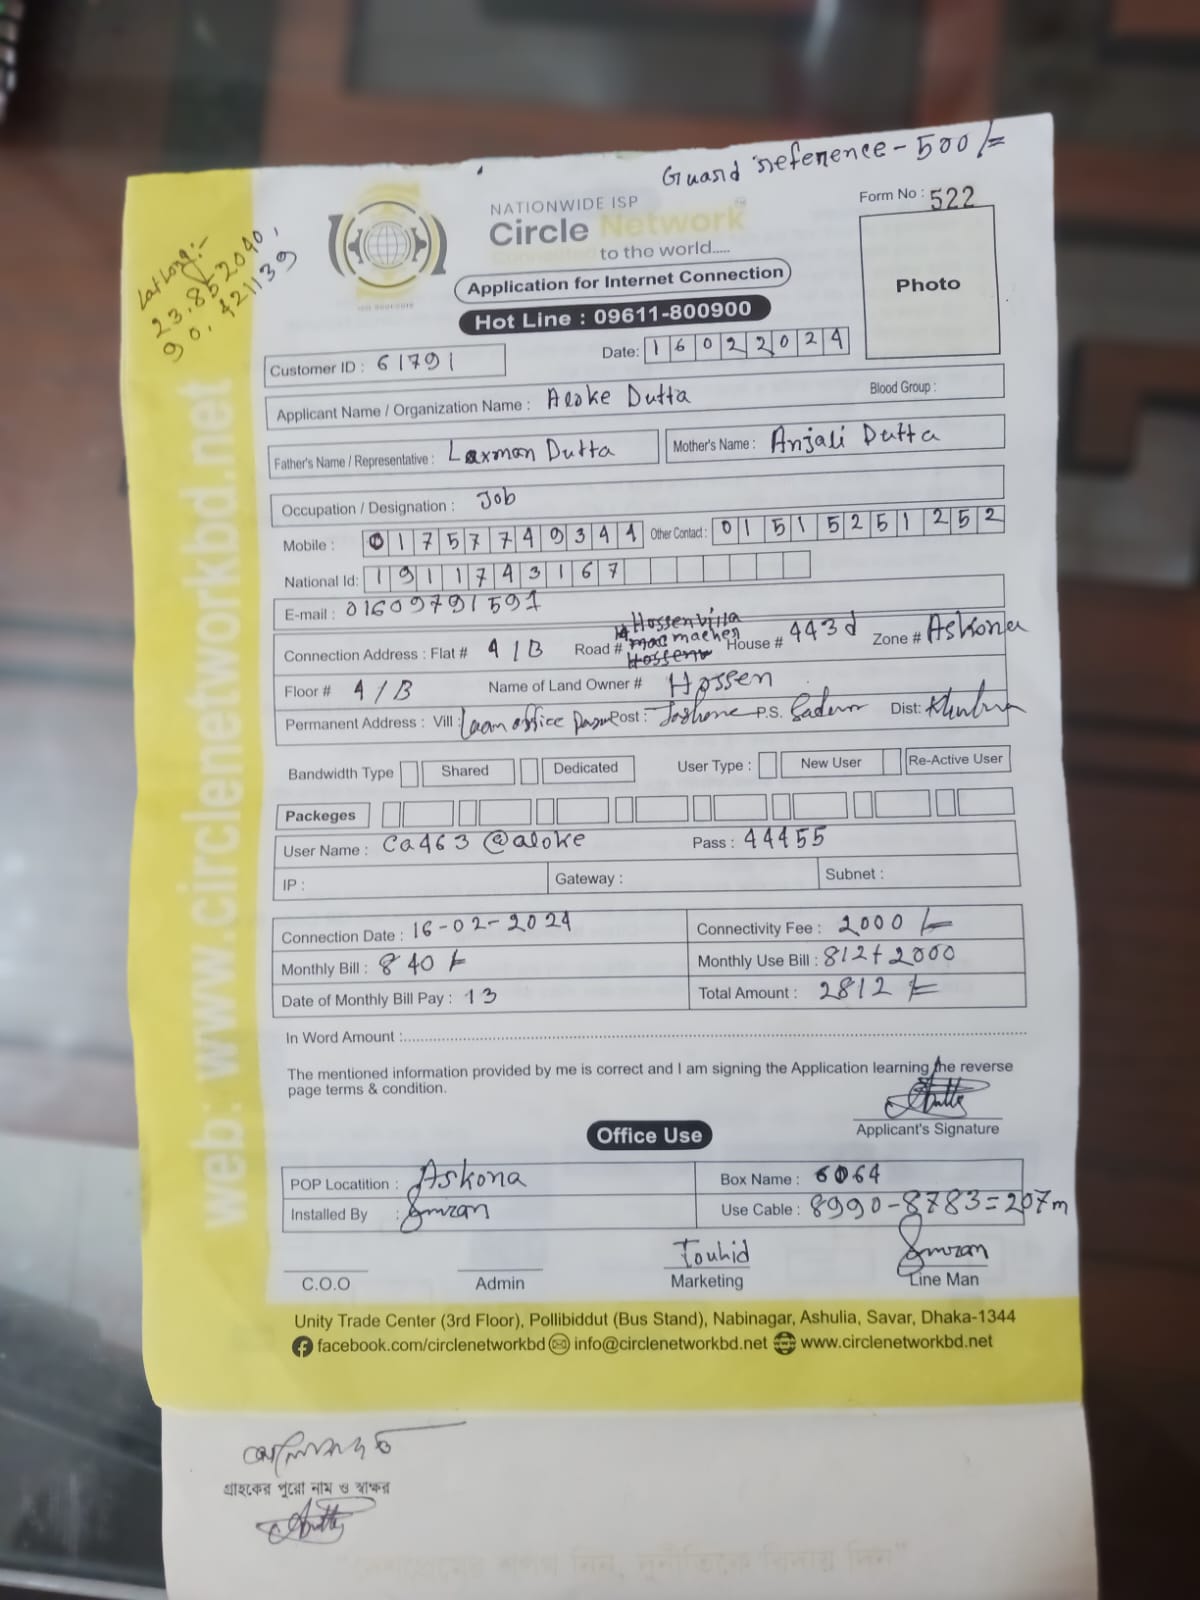 Guard reference - 500/=
Form No : 522
NATIONWIDE ISP
Circle Network
to the world.....
Application for Internet Connection
Hot Line : 09611-800900
Photo
Lat Long:-
23.852040,
90.421139
web: www.circlenetworkbd.net
Customer ID : 61791
Date: 16022024
Applicant Name / Organization Name : Aloke Dutta Blood Group :
Father's Name / Representative : Laxman Dutta Mother's Name : Anjali Dutta
Occupation / Designation : Job
Mobile : 01757749344 Other Contact : 01515251252
National Id: 1911743167
E-mail : 01609791591
Hossen villa
Connection Address : Flat # 4/B Road # House # 443d Zone # Askona
Floor # 4/B Name of Land Owner # Hossen
Permanent Address : Vill : Loan office para Post : Jashore P.S. Sadar Dist: Khulna
Bandwidth Type Shared Dedicated User Type : New User Re-Active User
Packeges
User Name : Ca463@aloke Pass : 44455
IP : Gateway : Subnet :
Connection Date : 16-02-2024 Connectivity Fee : 2000/=
Monthly Bill : 840/= Monthly Use Bill : 812+2000
Date of Monthly Bill Pay : 13 Total Amount : 2812/=
In Word Amount :
The mentioned information provided by me is correct and I am signing the Application learning the reverse
page terms & condition.
Applicant's Signature
Office Use
POP Locatition : Askona Box Name : 6064
Installed By : Imran Use Cable : 8990-8783=207m
Touhid Imran
C.O.O Admin Marketing Line Man
Unity Trade Center (3rd Floor), Pollibiddut (Bus Stand), Nabinagar, Ashulia, Savar, Dhaka-1344
facebook.com/circlenetworkbd info@circlenetworkbd.net www.circlenetworkbd.net
গ্রাহকের পুরো নাম ও স্বাক্ষর